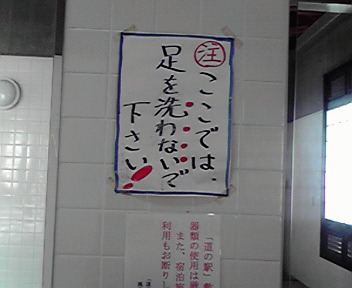 注
ここでは、
足を洗わないで
下さい!
「道の駅」
器類の使用は
また、宿泊
利用もお断りし